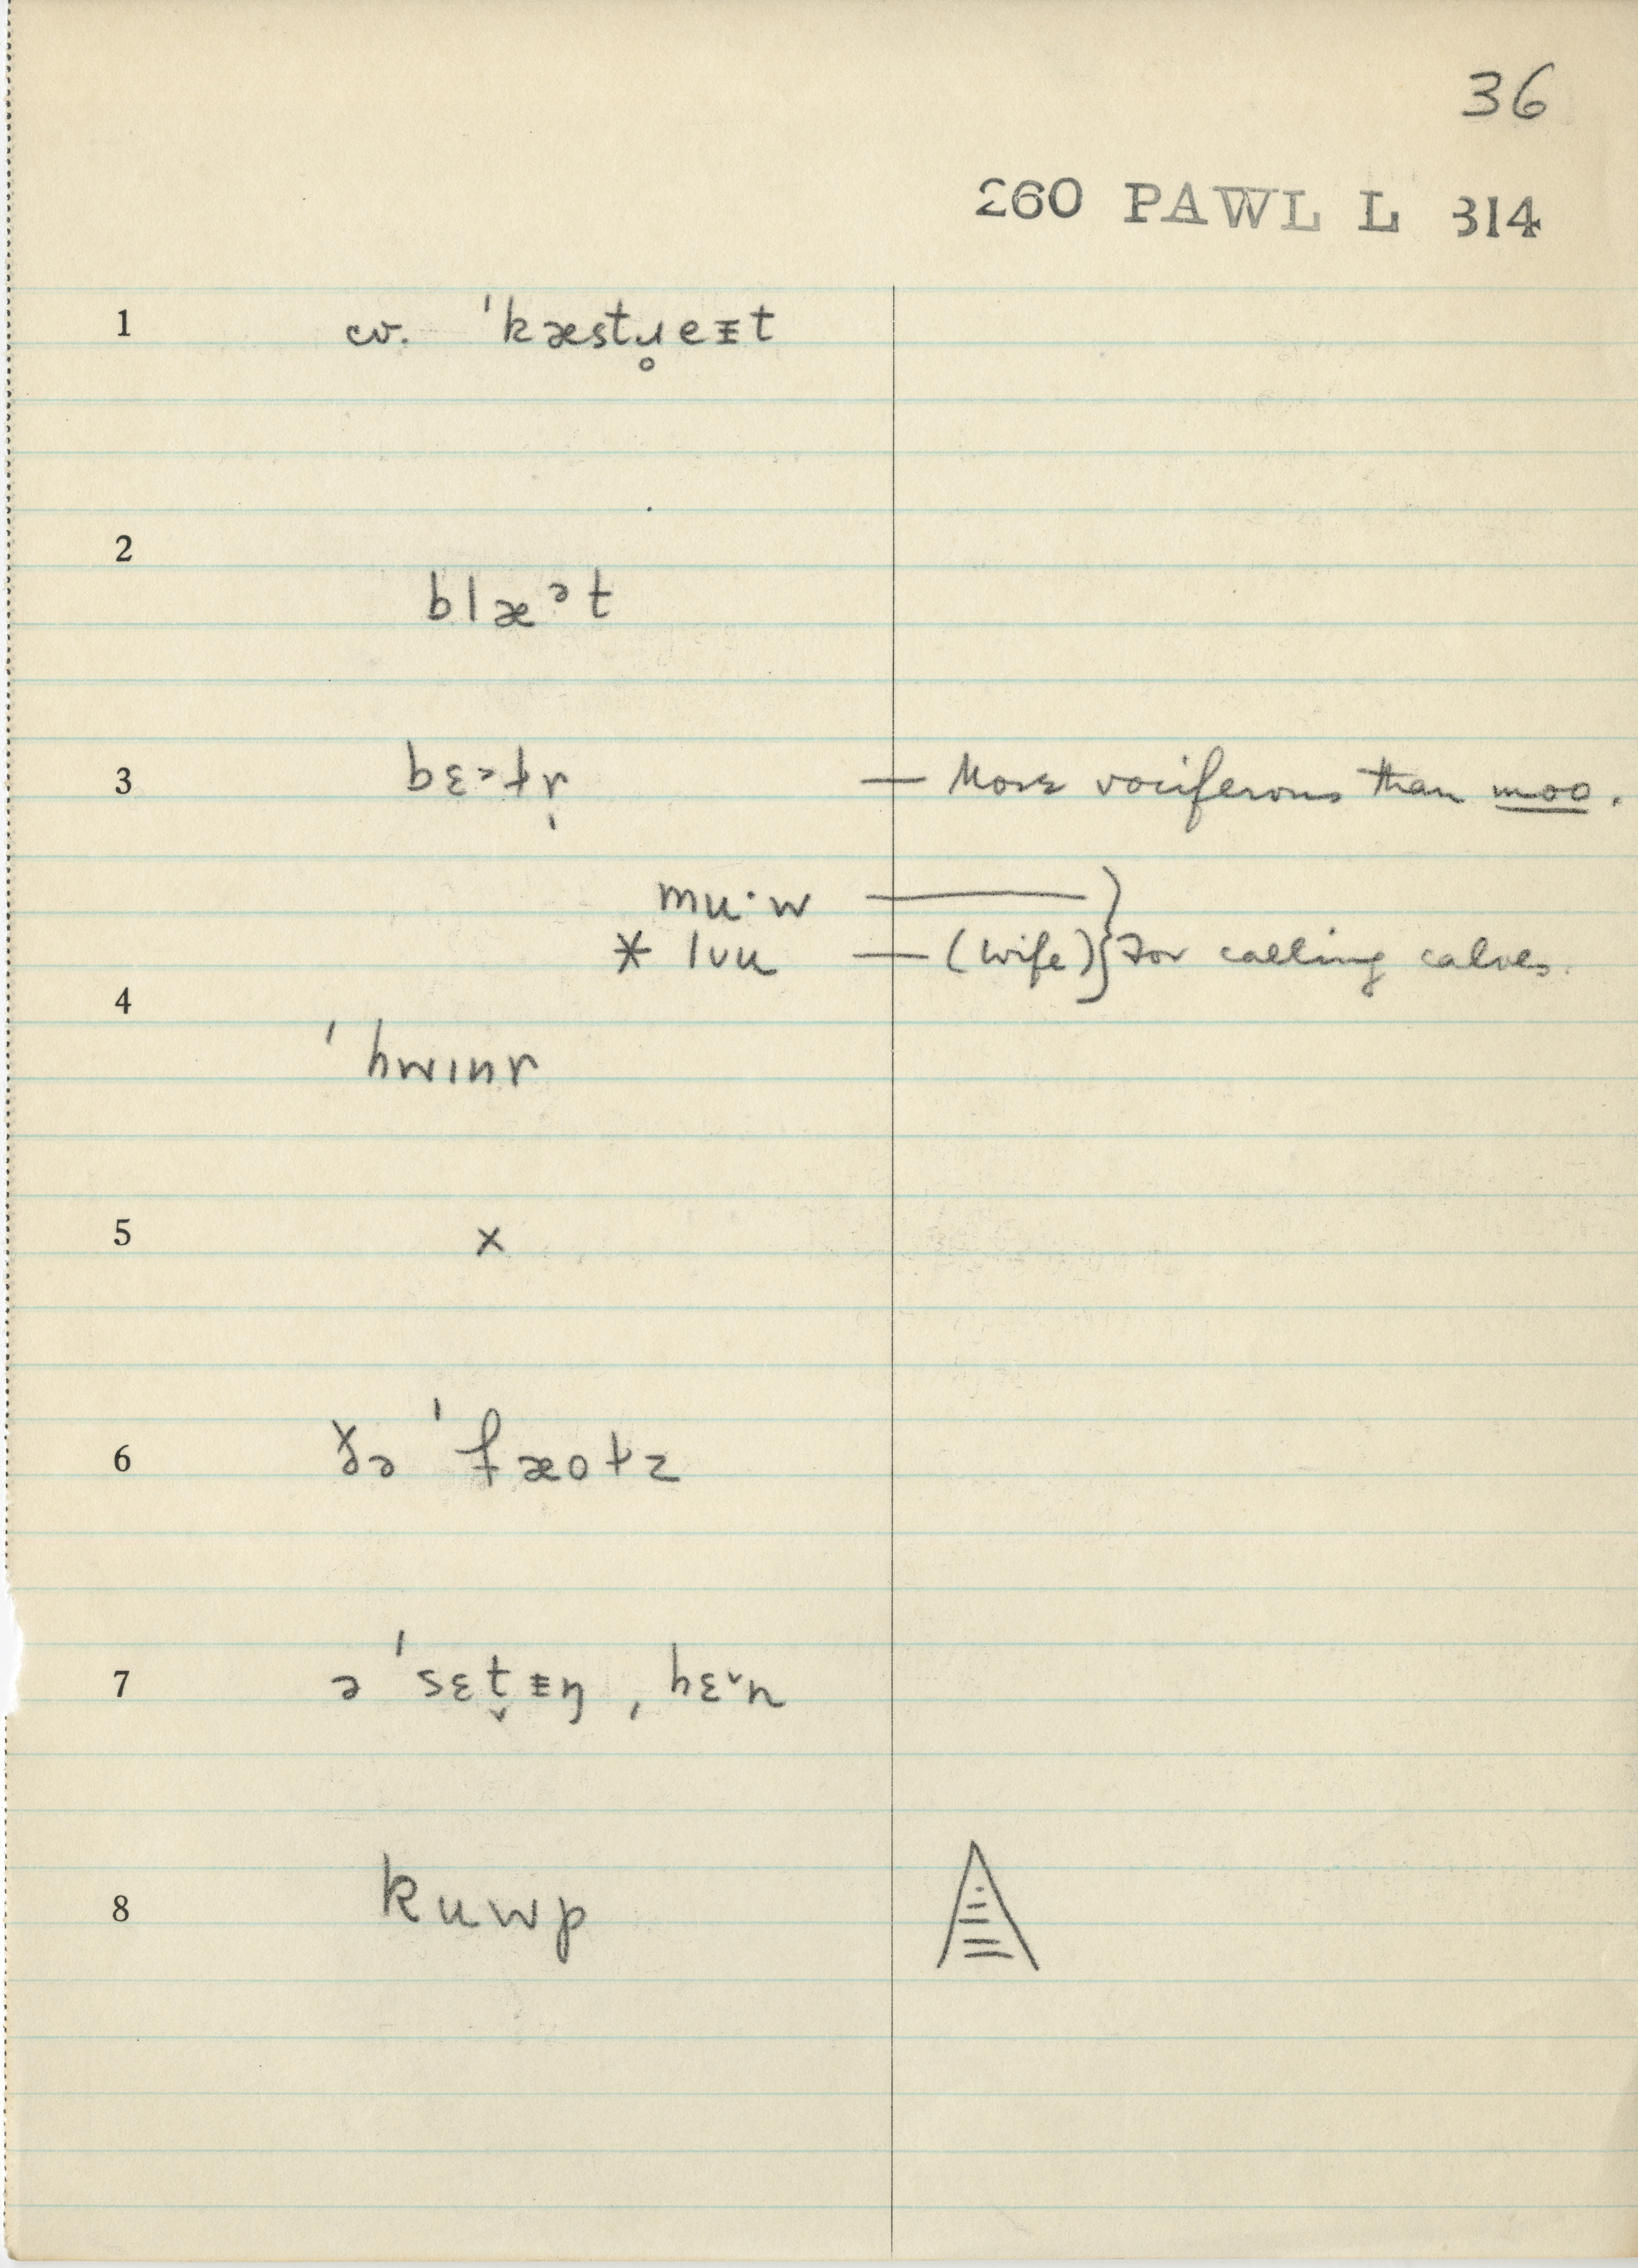 36
260 PAWL L 314
1 cv. ˈkæstɹ̥eᵻt
2 blæᵊt
3 bɛ˃tɚ̩ — More vociferous than moo.
mu·w —
* lʊu — (wife) } For calling calves.
4 ˈhwɪnɚ
5 x
6 ðə ˈfæotz
7 ə ˈsɛt̬ᵻŋ ˌhɛ˅n
8 kuwp